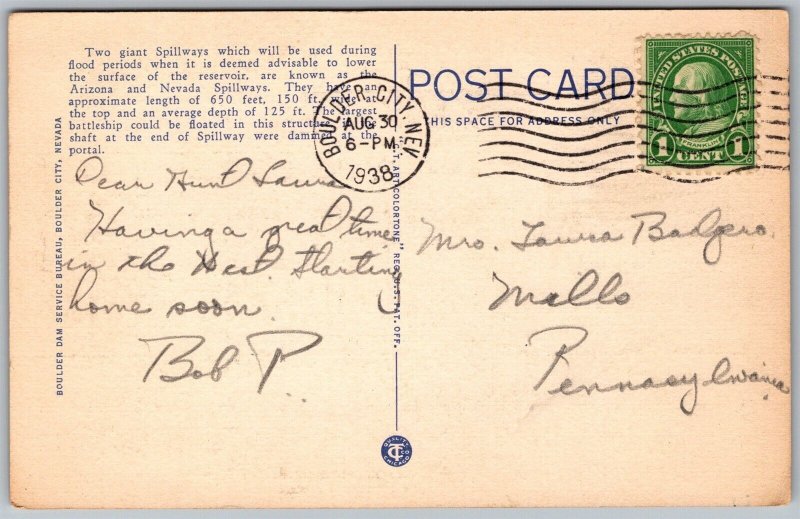 Two giant Spillways which will be used during
flood periods when it is deemed advisable to lower
the surface of the reservoir, are known as the
Arizona and Nevada Spillways. They have an
approximate length of 650 feet, 150 ft. at
the top and an average depth of 125 ft. The largest
battleship could be floated in this structure. the
shaft at the end of Spillway were dammed at the
portal.
BOULDER DAM SERVICE BUREAU, BOULDER CITY, NEVADA
Dear Aunt Laura
Having a great time
in the West. Starting
home soon.
Bob P.
ART-COLORTONE" REG. U.S. PAT. OFF.
QUALITY
CT CO
CHICAGO
BOULDER CITY NEV.
AUG 30
6-PM
1938
POST CARD
THIS SPACE FOR ADDRESS ONLY
UNITED STATES POSTAGE
FRANKLIN
1 CENT 1
Mrs. Laura Badgero.
Mills
Pennasylvania